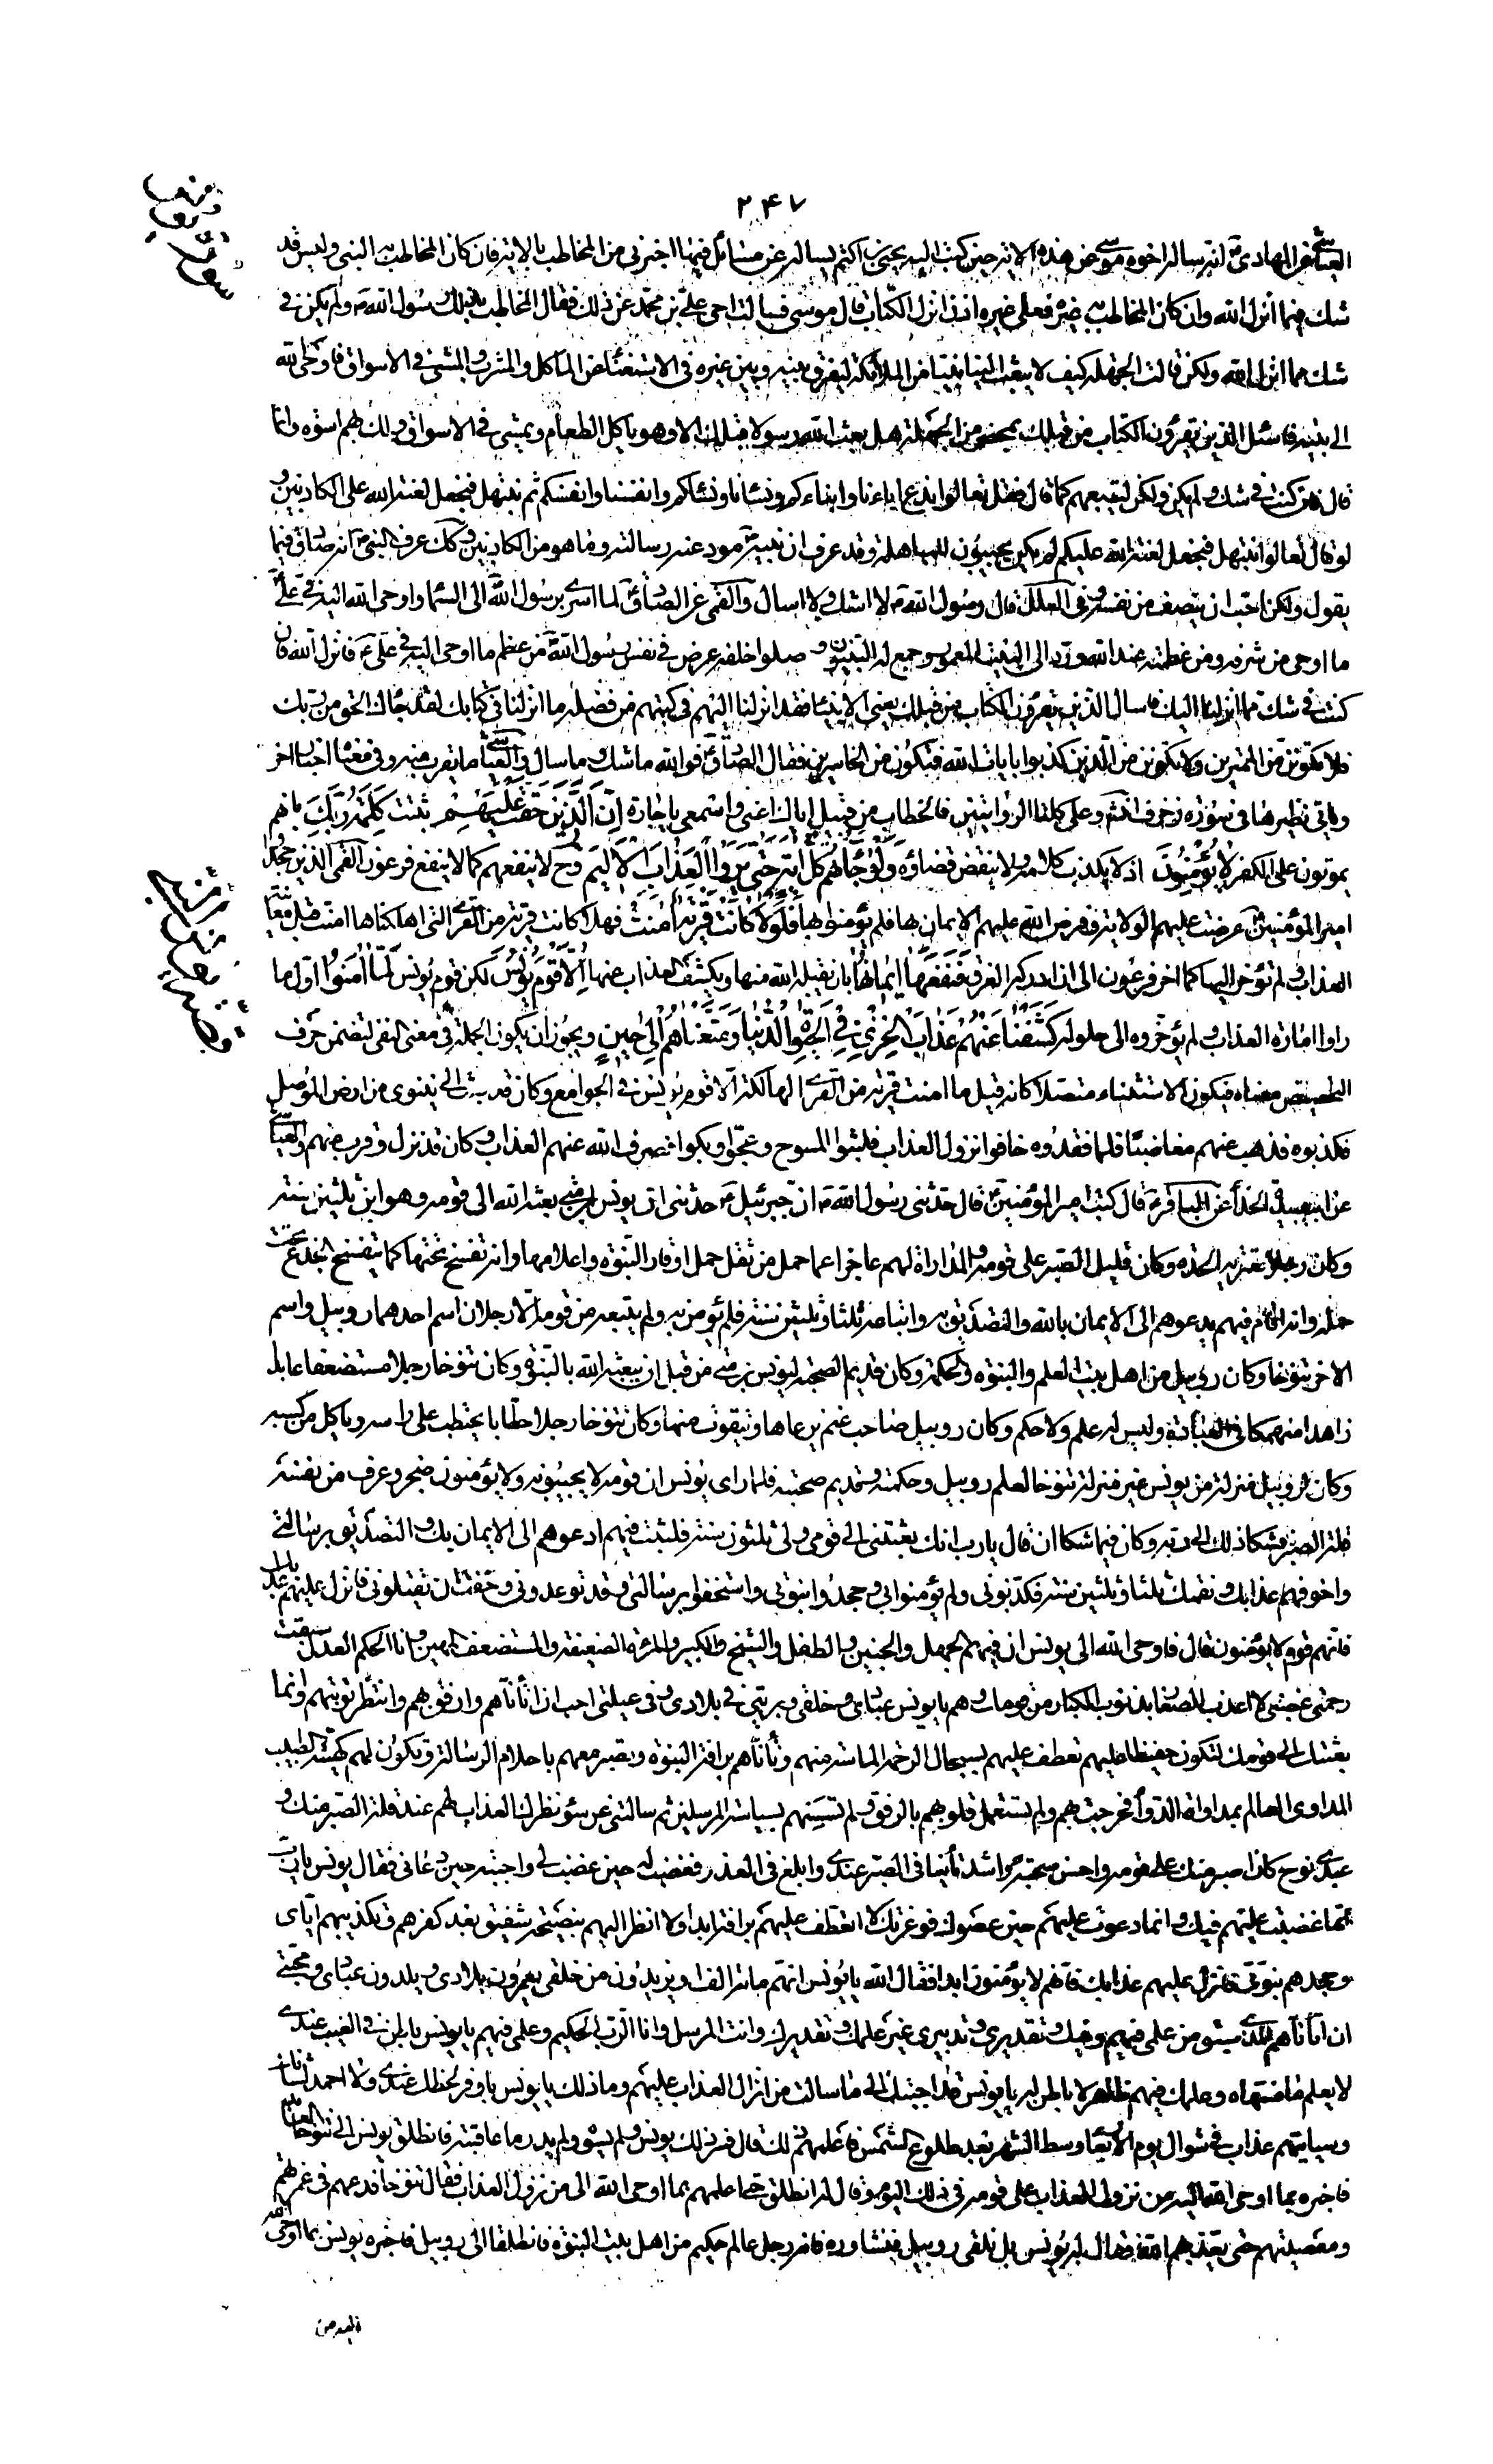 ۲۴۷
العياشي عن الهادي ع انه ساله اخوه موسى عن هذه الاية حين كتب اليه يحيى بن اكثم يساله عن مسائل فيها اخبرني من المخاطب بالاية فان كان المخاطب به النبي وليس قد
شك فيما انزل الله وان كان المخاطب به غيره فعلى غيره اذن انزل الكتاب قال موسى فسالت اخي علي بن محمد عن ذلك فقال المخاطب بذلك رسول الله ص ولم يكن في
شك مما انزل الله ولكن قالت الجهلة كيف لا يبعث الينا نبيا من الملائكة ليفرق بينه وبين غيره في الاستغناء عن الماكل والمشرب والمشي في الاسواق فاوحى الله
الى نبيه فاسئل الذين يقرؤن الكتاب من قبلك بمحضر من الجهلة هل بعث الله رسولا قبلك الا وهو ياكل الطعام ويمشي في الاسواق ولك بهم اسوة وانما
قال فان كنت في شك ولم يكن ولكن ليتبعهم كما قال فقل تعالوا ندع ابناءنا وابناءكم ونسانا ونسائكم وانفسنا وانفسكم ثم نبتهل فنجعل لعنة الله على الكاذبين و
لو قال تعالوا نبتهل فنجعل لعنة الله عليكم لم يكن يجيبون للمباهلة وقد عرف ان نبيه ص مود عنه رسالته وما هو من الكاذبين وكك عرف النبي ص انه صادق فيما
يقول ولكن احب ان ينصف من نفسه وفي العلل قال رسول الله ص لا اشك ولا اسال والقمي عن الصادق ع لما اسري برسول الله ص الى السماء واوحى الله اليه في علي ع
ما اوحى من شرفه ومن عظمته عند الله ورد الى البيت المعمور وجمع له النبيون و صلوا خلفه عرض في نفس رسول الله ص من عظم ما اوحى اليه في علي ع فانزل الله فان
كنت في شك مما انزلنا اليك فاسال الذين يقرؤن الكتاب من قبلك يعني الانبياء فقد انزلنا اليهم في كتبهم من فضله ما انزلنا في كتابك لقد جائك الحق من ربك
فلا تكونن من الممترين ولا تكونن من الذين كذبوا بايات الله فتكون من الخاسرين فقال الصادق ع فوالله ما شك وما سال والعياشي ما يقرب منه وفي معناه اخبار اخر
وياتي نظيرها في سورة زخرف انشم وعلى كلتا الروايتين فالخطاب من قبيل اياك اعني واسمعي يا جارة إن الذين حقت عليهم ثبتت كلمة ربك بانهم
يموتون على الكفر لا يؤمنون اذ لا يكذب كلامه ولا ينقض قضاؤه ولو جائتهم كل اية حتى يروا العذاب الاليم وح لا ينفعهم كما لا ينفع فرعون القمي الذين جحدوا
امير المؤمنين ع عرضت عليهم الولاية وفرض الله عليهم الايمان بها فلم يؤمنوا بها فلولا كانت قرية امنت فهلا كانت قرية من القرى التي اهلكناها امنت قبل معاينة
العذاب ولم تؤخر اليها كما اخر فرعون الى ان ادركه الغرق فنفعها ايمانها بان يقبله الله منها ويكشف العذاب عنها الا قوم يونس لكن قوم يونس لما امنوا اول ما
راوا امارة العذاب ولم يؤخروه الى حلوله كشفنا عنهم عذاب الخزي في الحيوة الدنيا ومتعناهم الى حين ويجوز ان يكون الجملة في معنى النفي لتضمن حرف
التحضيض معناه فيكون الاستثناء متصلا كانه قيل ما امنت قرية من القرى الهالكة الا قوم يونس في الجوامع وكان قد بعث الى نينوى من ارض الموصل
فكذبوه فذهب عنهم مغاضبا فلما فقدوه خافوا نزول العذاب فلبثوا المسوح وعجوا وبكوا فصرف الله عنهم العذاب وكان قد نزل وقرب منهم والعياشي
عن ابي عبيدة الحذاء عن الباقر ع قال كتب امير المؤمنين ع قال حدثني رسول الله ص ان جبرئيل ع حدثني ان يونس بن متى بعثه الله الى قومه وهو ابن ثلثين سنة
وكان رجلا تعتريه الحدة وكان قليل الصبر على قومه والمداراة لهم عاجزا عما حمل من ثقل حمل اوقار النبوة واعلامها وانه تفسخ تحتها كما يتفسخ الجذع تحت
حمله وانه اقام فيهم يدعوهم الى الايمان بالله والتصديق به واتباعه ثلثا وثلثين سنة فلم يؤمن به ولم يتبعه من قومه الا رجلان اسم احدهما روبيل واسم
الاخر تنوخا وكان روبيل من اهل بيت العلم والنبوة والحكمة وكان قديم الصحبة ليونس بن متى من قبل ان يبعثه الله بالنبوة وكان تنوخا رجلا مستضعفا عابدا
زاهدا منهمكا في العبادة وليس له علم ولا حكم وكان روبيل صاحب غنم يرعاها ويتقوت منها وكان تنوخا رجلا حطابا يحتطب على راسه وياكل من كسبه
وكان لروبيل منزلة من يونس غير منزلة تنوخا لعلم روبيل وحكمته وقديم صحبته فلما راى يونس ان قومه لا يجيبونه ولا يؤمنون ضجر وعرف من نفسه
قلة الصبر فشكا ذلك الى ربه وكان فيما شكا ان قال يارب انك بعثتني الى قومي ولي ثلثون سنة فلبثت فيهم ادعوهم الى الايمان بك والتصديق برسالتي
واخوفهم عذابك ونقمتك ثلثا وثلثين سنة فكذبوني ولم يؤمنوا بي وجحدوا نبوتي واستخفوا برسالتي وقد توعدوني وخفت ان يقتلوني فانزل عليهم عذابك
فانهم قوم لا يؤمنون قال فاوحى الله الى يونس ان فيهم الحمل والجنين والطفل والشيخ الكبير والمرئة الضعيفة والمستضعف المهين وانا الحكم العدل سبقت
رحمتي غضبي لا اعذب الصغار بذنوب الكبار من قومك وهم يا يونس عبادي وخلقي وبريتي في بلادي وفي عيلتي احب ان اتأناهم وارفق بهم وانتظر توبتهم وانما
بعثتك الى قومك لتكون حفيظا عليهم تعطف عليهم بسجال الرحمة الماسة منهم وتأناهم برافة النبوة وتصبر معهم باحلام الرسالة وتكون لهم كهيئة الطبيب
المداوي العالم بمداواة الدواء فخرجت بهم ولم تستعمل قلوبهم بالرفق ولم تسسهم بسياسة المرسلين ثم سالتني عن سوء نظرك العذاب لهم عند قلة الصبر منك و
عبدي نوح كان اصبر منك على قومه واحسن صحبة واشد تأنيا في الصبر عندي وابلغ في العذر فغضبت له حين غضب لي واجبته حين دعاني فقال يونس يارب
انما غضبت عليهم فيك وانما دعوت عليهم حين عصوك فوعزتك لا اتعطف عليهم برافة ابدا ولا انظر اليهم بنصيحة شفيق بعد كفرهم وتكذيبهم اياي
وجحدهم نبوتي فانزل عليهم عذابك فانهم لا يؤمنون ابدا فقال الله يا يونس انهم مائة الف او يزيدون من خلقي يعمرون بلادي ويلدون عبادي ومحبتي
ان اتأناهم للذي سبق من علمي فيهم وفيك وتقديري وتدبيري غير علمك وتقديرك وانت المرسل وانا الرب الحكيم وعلمي فيهم يا يونس باطن في الغيب عندي
لا يعلم ما منتهاه وعلمك فيهم ظاهر لا باطن له يا يونس قد اجبتك الى ما سالت من انزال العذاب عليهم وما ذلك يا يونس باوفر لحظك عندي ولا احمد لشانك
وسياتيهم عذاب في شوال يوم الاربعاء وسط الشهر بعد طلوع الشمس فاعلمهم ذلك قال فسر ذلك يونس ولم يسؤه ولم يدر ما عاقبته فانطلق يونس الى تنوخا العابد
فاخبره بما اوحى الله اليه من نزول العذاب على قومه في ذلك اليوم وقال له انطلق حتى اعلمهم بما اوحى الله الى من نزول العذاب فقال تنوخا فدعهم في غمرتهم
ومعصيتهم حتى يعذبهم الله فقال له يونس بل نلقى روبيل فنشاوره فانه رجل عالم حكيم من اهل بيت النبوة فانطلقا الى روبيل فاخبره يونس بما اوحى الله
اليه من